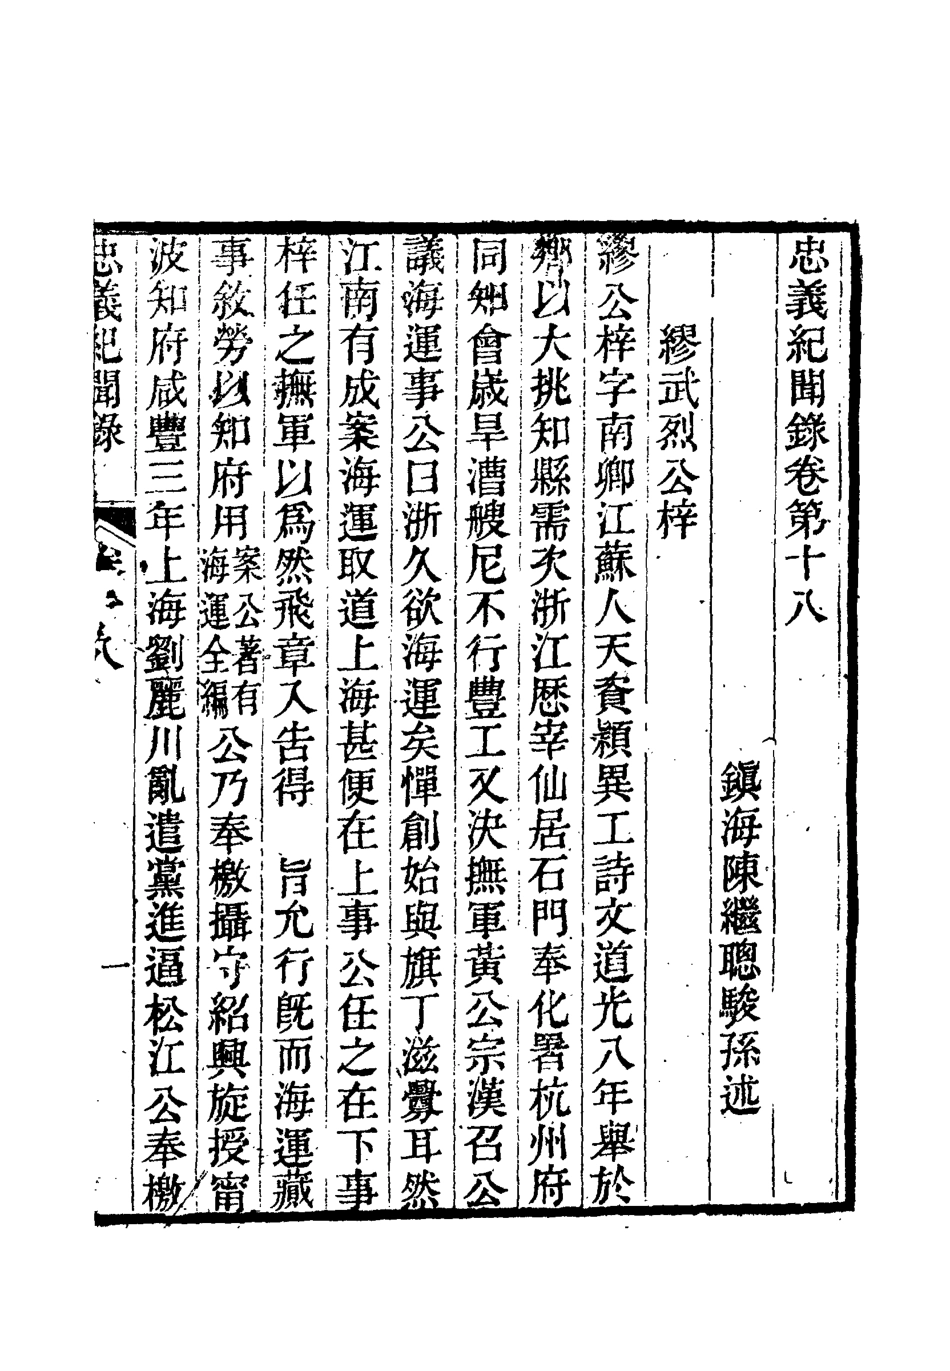 忠義紀聞錄卷第十八
鎮海陳繼聰駿孫述
繆武烈公梓
繆公梓字南卿江蘇人天資穎異工詩文道光八年舉於
鄉以大挑知縣需次浙江歷宰仙居石門奉化署杭州府
同知會歲旱漕艘尼不行豐工又決撫軍黃公宗漢召公
議海運事公曰浙久欲海運矣憚創始與旗丁滋釁耳然
江南有成案海運取道上海甚便在上事公任之在下事
梓任之撫軍以爲然飛章入告得 旨允行旣而海運藏
事敘勞以知府用案公著有海運全編公乃奉檄攝守紹興旋授甯
波知府咸豐三年上海劉麗川亂遣黨進逼松江公奉檄
忠義紀聞錄 卷十八 一